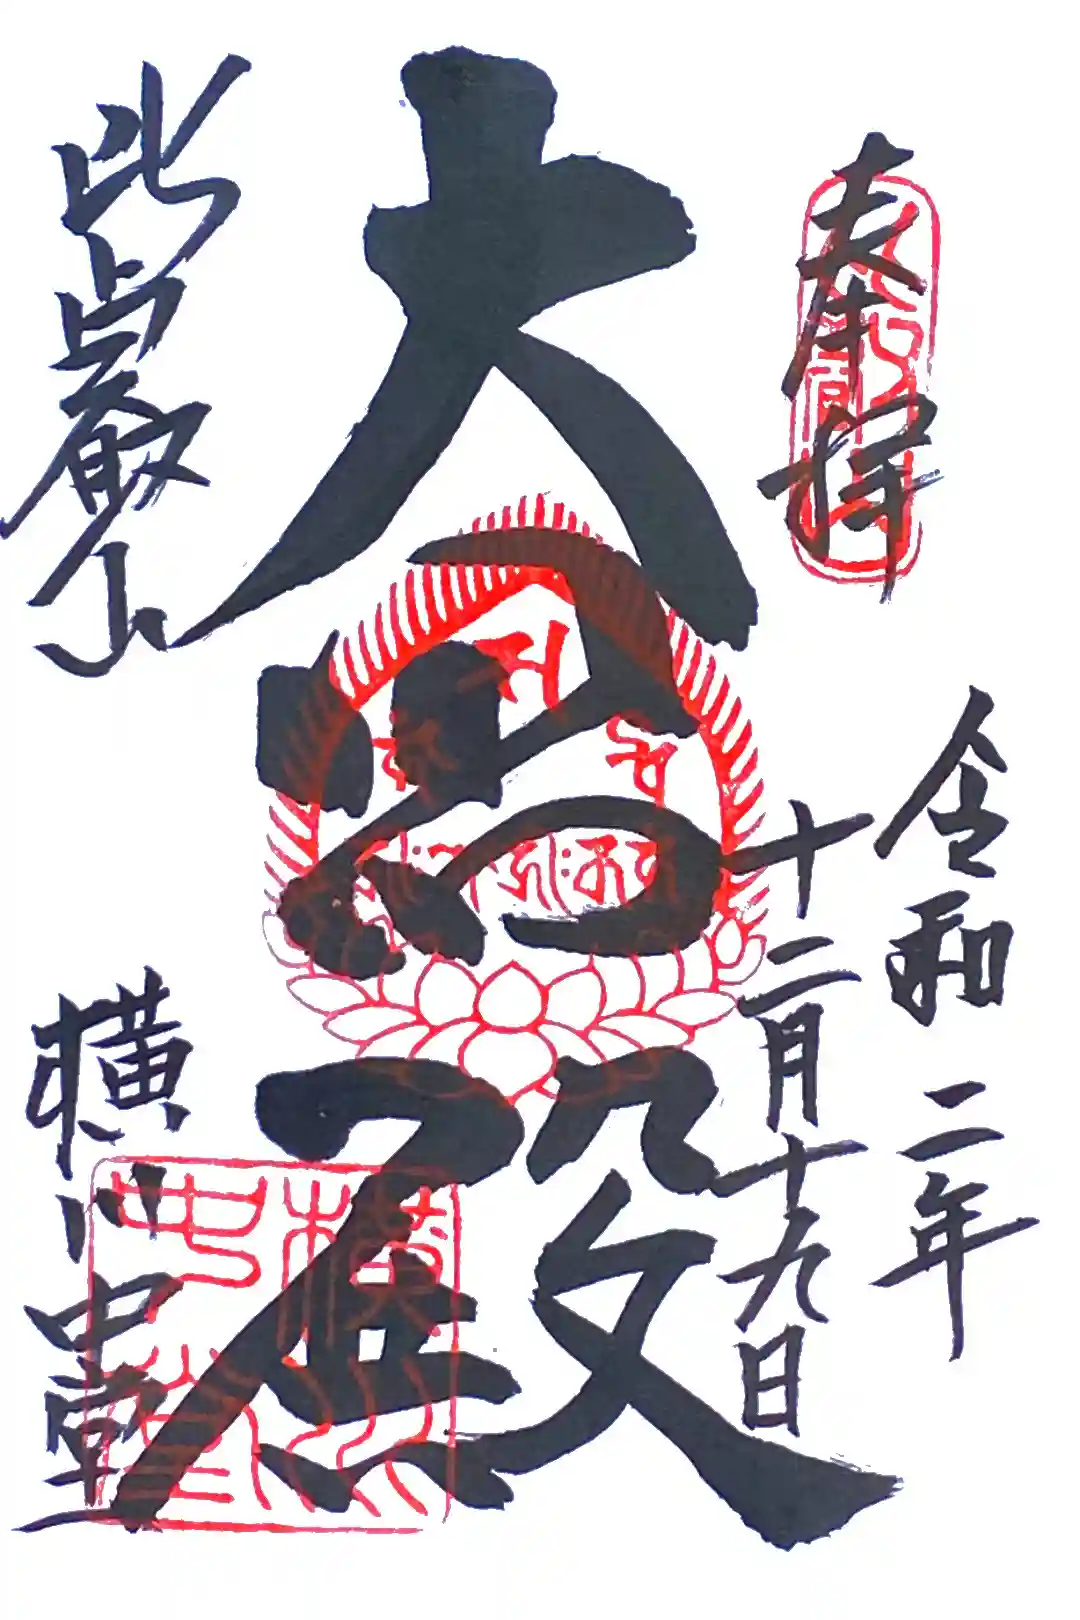 奉拝
令和二年
十二月十九日
大悲殿
比叡山
横川中堂